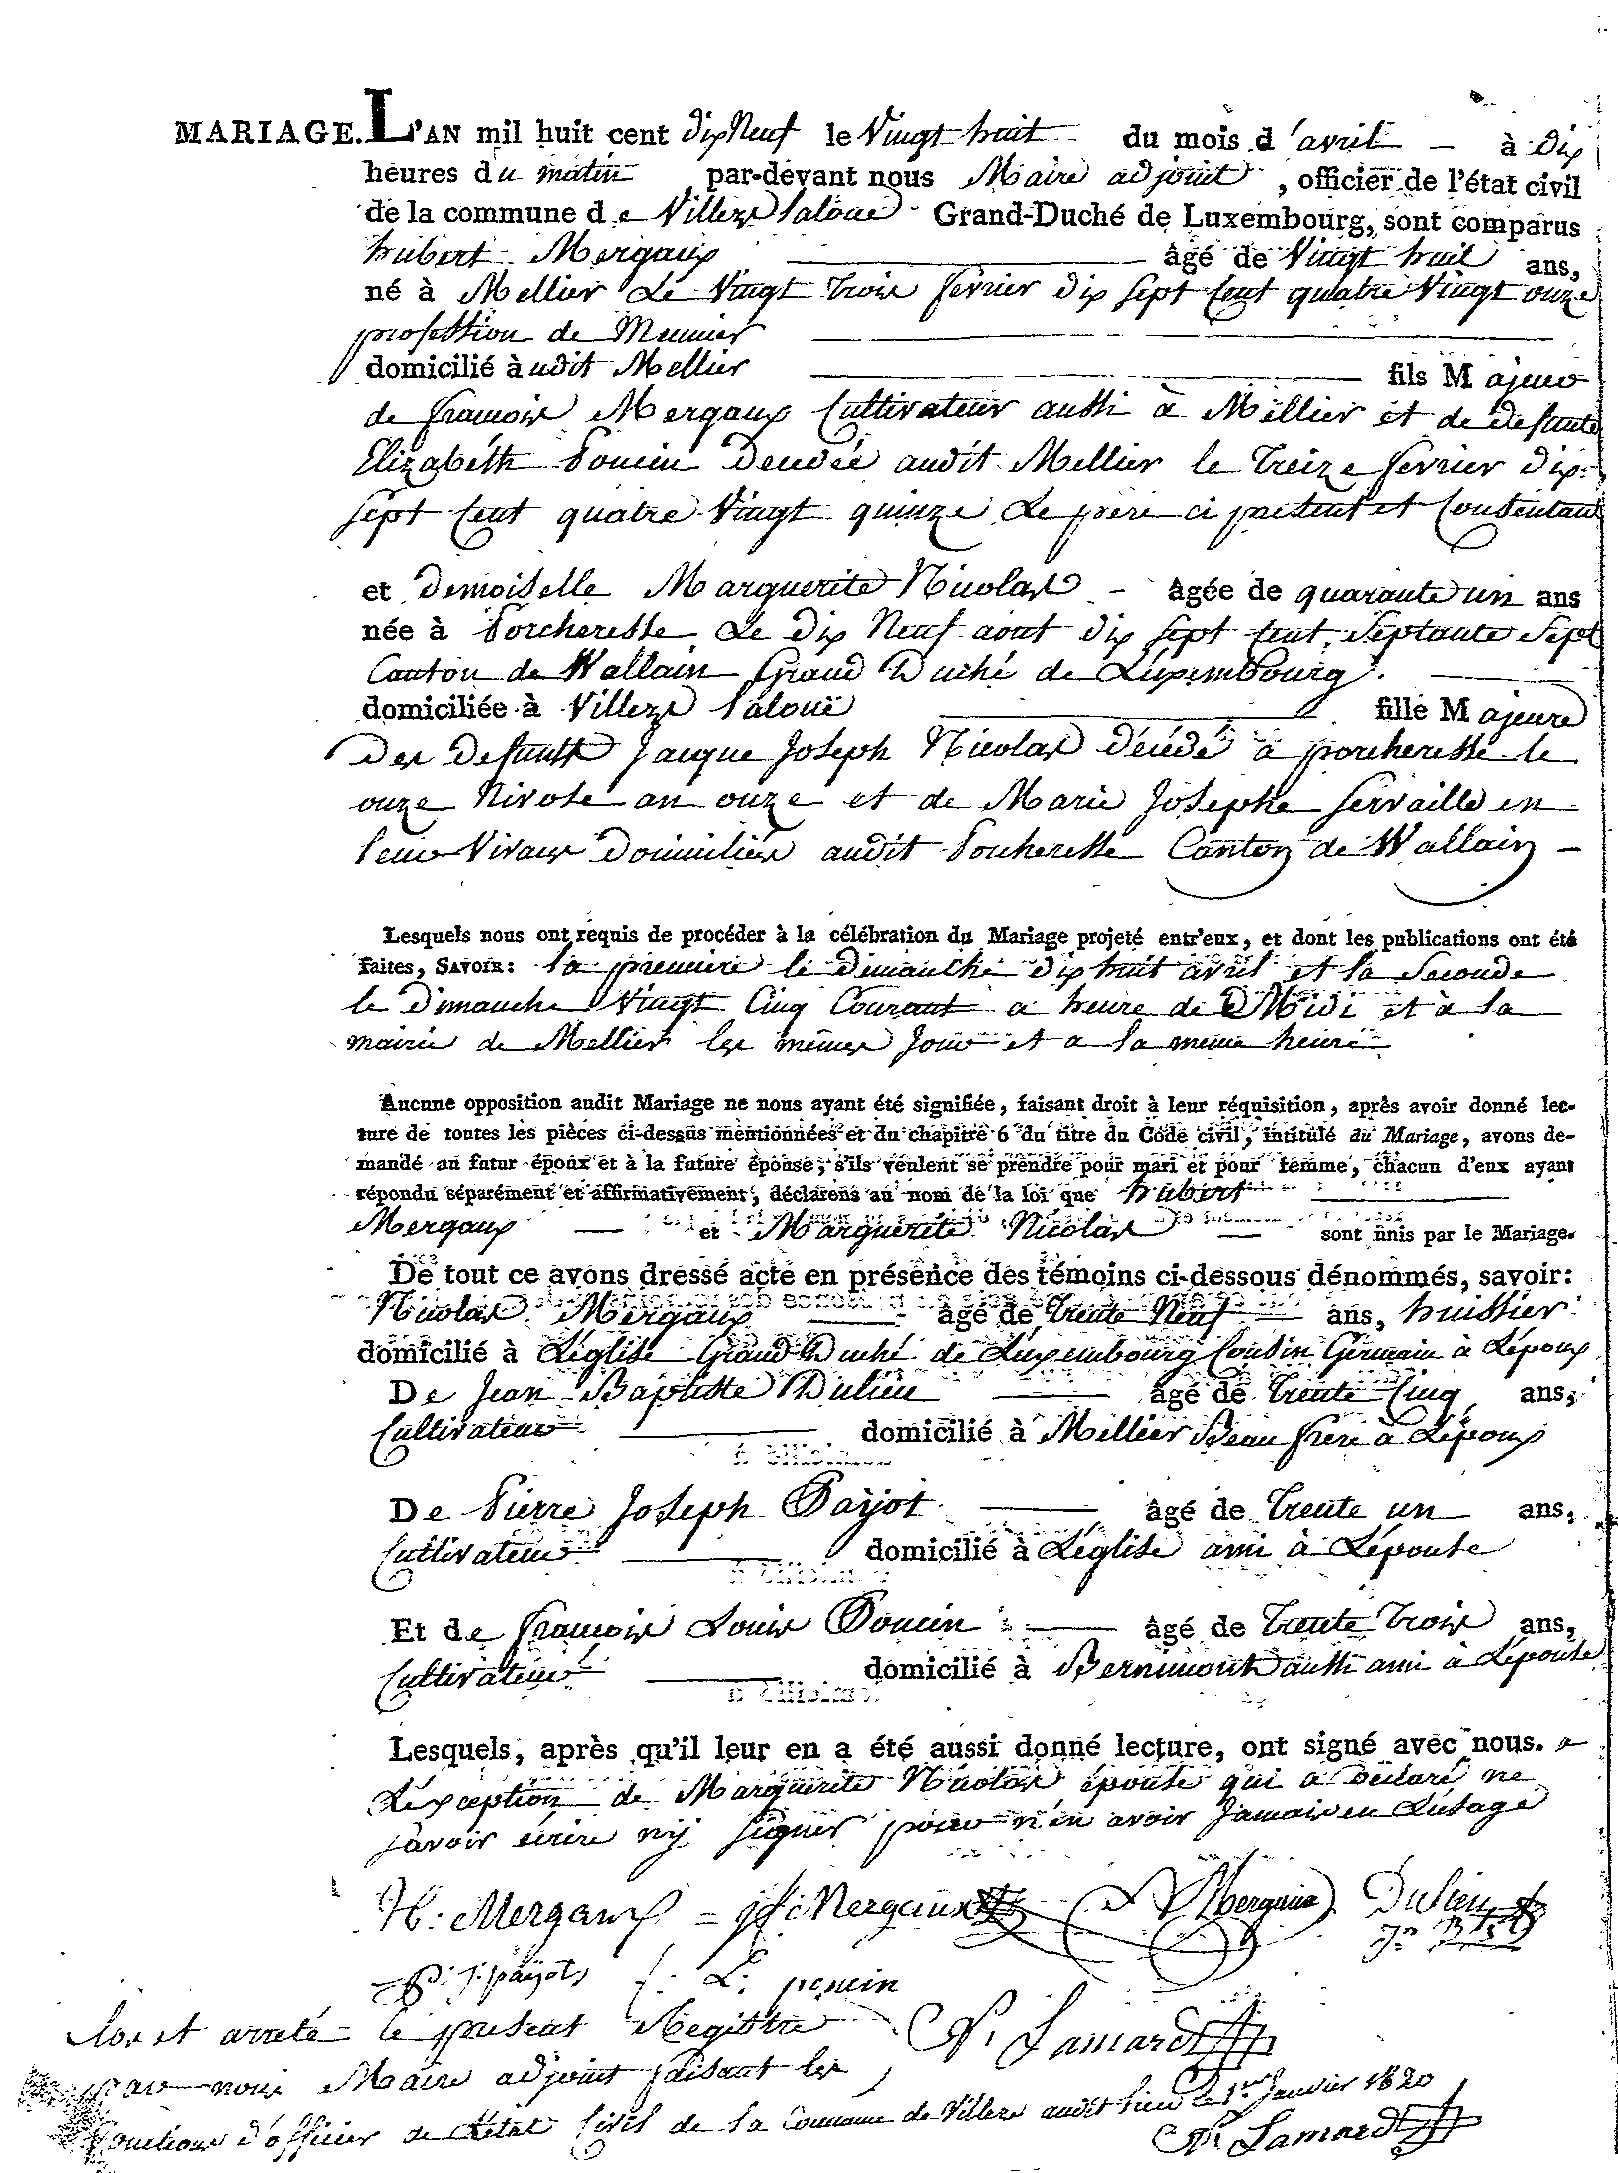 MARIAGE. L'AN mil huit cent dix Neuf le Vingt huit du mois d'avril - à dix
heures du matin, par-devant nous Maire adjoint, officier de l'état civil
de la commune de Villers Laloue Grand-Duché de Luxembourg, sont comparus
hubert Mergaux âgé de Vingt huit ans,
né à Mellier Le Vingt trois fevrier dix sept Cent quatre Vingt onze
profession de Meunier
domicilié à udit Mellier fils Majeur
de francois Mergaux Cultivateur aussi à Mellier et de defunte
Elizabéth Poncin decedéé audit Mellier le treize fevrier dix
sept Cent quatre Vingt quinze Le père ci présent et Consentant
et demoiselle Marguerite Nicolas - âgée de quarante un ans
née à Porcheresse Le dix Neuf aout dix sept Cent Septante Sept
Canton de Wallain Grand Duché de Luxembourg.
domiciliée à Villers Laloué fille Majeure
des defunts Jacque Joseph Nicolas décédé à porcheresse le
onze Nivose an onze et de Marie Josephe Servaille en
leur Vivant domiciliés audit Porcheresse Canton de Wallain -
Lesquels nous ont requis de procéder à la célébration du Mariage projeté entr'eux, et dont les publications ont été
faites, SAVOIR: la premiere le dimanche dix huit avril et la Seconde
le dimanche Vingt Cinq Courant a heure de Midi et à la
mairie de Mellier les mêmes Jour et a la meme heure
Aucune opposition audit Mariage ne nous ayant été signifiée, faisant droit à leur réquisition, après avoir donné lec-
ture de toutes les pièces ci-dessus mentionnées et du chapitre 6 du titre du Code civil, intitulé du Mariage, avons de-
mandé au futur époux et à la future épouse, s'ils veulent se prendre pour mari et pour femme, chacun d'eux ayant
répondu séparément et affirmativement, déclarons au nom de la loi que hubert
Mergaux - et Marguerite Nicolas - sont unis par le Mariage.
De tout ce avons dressé acte en présence des témoins ci-dessous dénommés, savoir:
Nicolas Mergaux âgé de trente Neuf ans, huissier
domicilié à Léglise Grand Duché de Luxembourg Cousin Germain à Lépoux
De Jean Baptiste Dulieu âgé de trente Cinq ans,
Cultivateur domicilié à Mellier Beau frere à Lépoux
De Pierre Joseph Payot âgé de trente un ans,
Cultivateur domicilié à Léglise ami à Lépouse
Et de francois Louis Poncin âgé de trente trois ans,
Cultivateur domicilié à Bernimont aussi ami à Lépouse
Lesquels, après qu'il leur en a été aussi donné lecture, ont signé avec nous. a
Léxception de Marguerite Nicolas épouse qui a declaré ne
savoir écrire nÿ signer pour n'en avoir Jamais eu Lusage
H: Mergaux = f: Mergaux N Mergaux Dulieu
Jn Bste
P: J: payot f: L: poncin
Clos et arreté le present Registre N. Lamard
par nous Maire adjoint faisant les
fonctions d'officier de L'état Civil de la Commune de Villers audit lieu le 1er Janvier 1820
N. Lamard